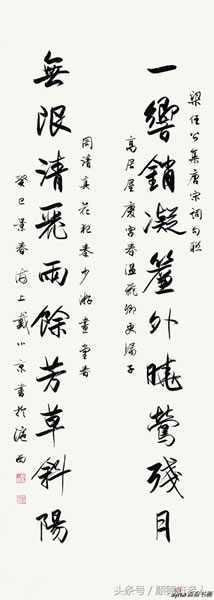 梁任公集唐宋詞句聯
一響銷凝簾外曉鶯殘月
高竹屋慶宮春溫飛卿更漏子
周清真花犯秦少游畫堂春
無限清麗雨餘芳草斜陽
癸巳景春海上戴小京書於滬西
sina 新浪书画